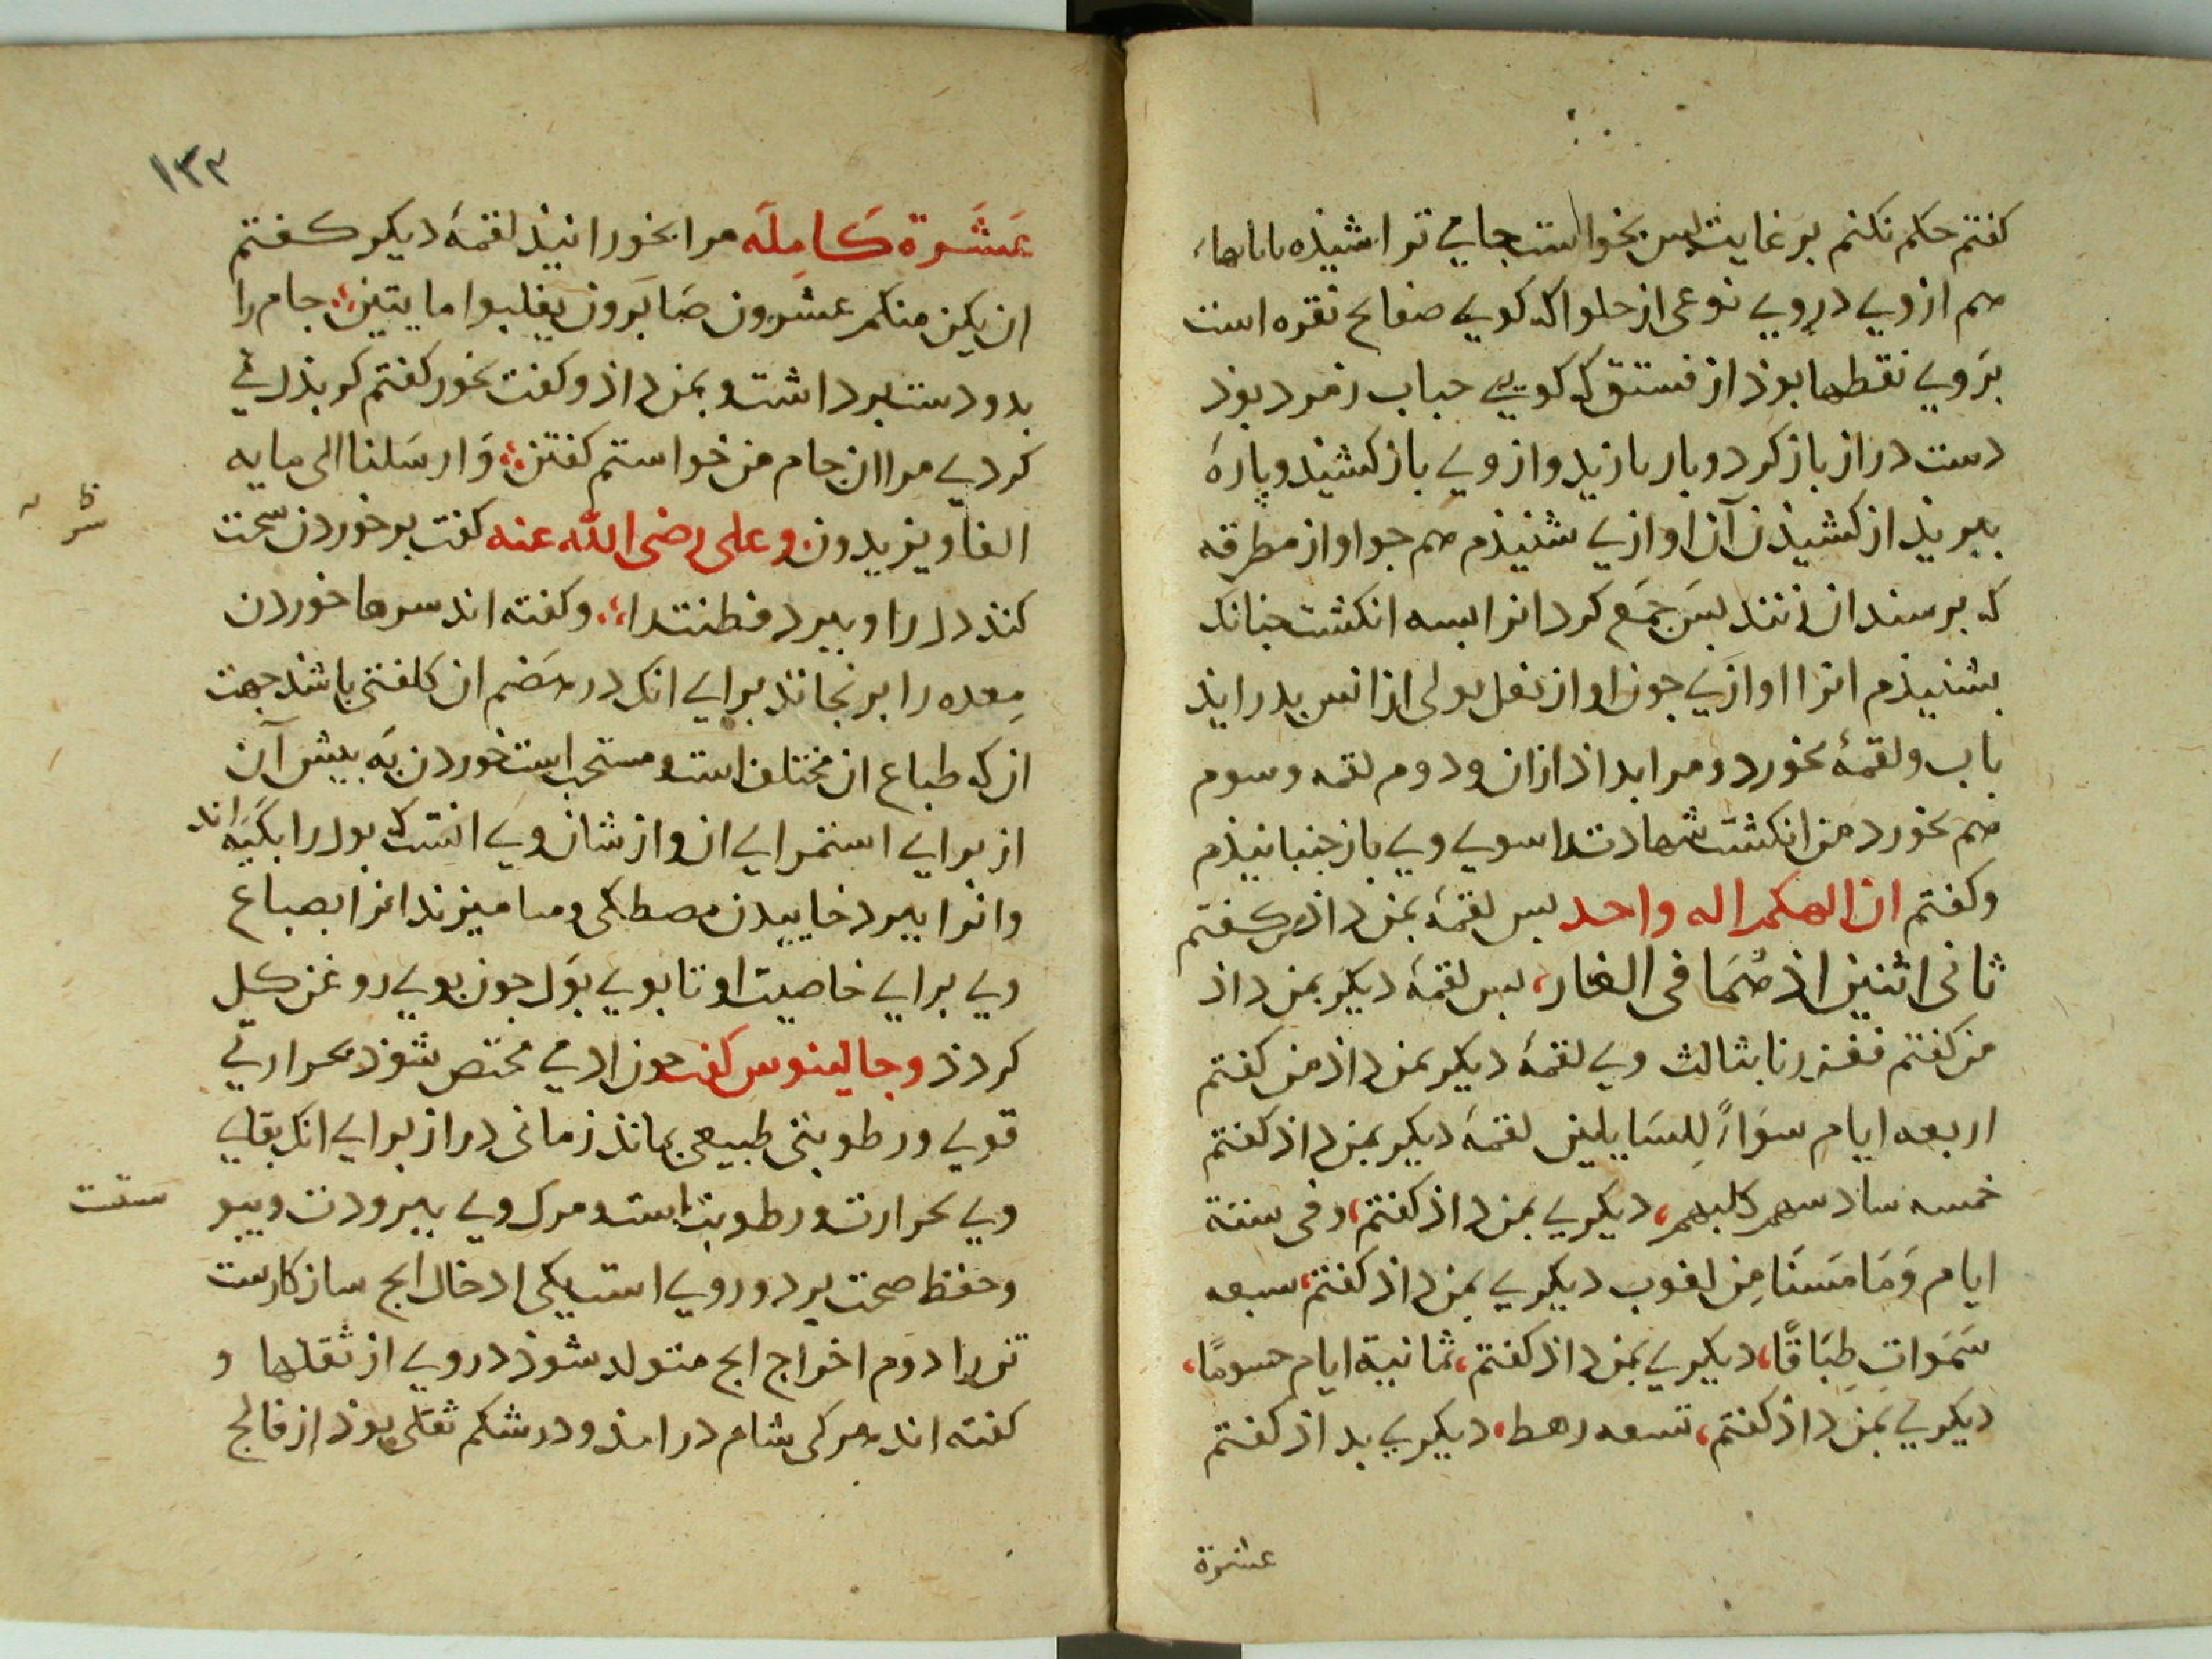 كفتم حكم نكنم بر غايت پس بخواست جامي تراشيذه
هم ازوي دروي نوعى از حلوا كه كويي صفايح نقره است
بروي نقطها بوذ از فستق كه كويي حباب زمرد بوذ
دست دراز باز كرد و بار بازيد و از وي باز كشيذ و پارۀ
ببريذ از كشيذن آن اوازي شنيذم هم جو اواز مطرقه
كه بر سندان زنند بس جمع كرد انرا بسه انكشت جنانك
بشنيذم انرا اوازي جون اواز نعل بولى از انس بدر ايذ
باب و لقمۀ بخورد و مرا بداذ ازان و دوم لقمه و سوم
هم بخورد من انكشت شهادت را سوي وي باز جنبانيذم
وكفتم ان الهكم اله واحد بس لقمۀ بمن داذ من كفتم
ثانى اثنين اذ هُمَا فى الغار، بس لقمۀ ديكر بمن داذ
من كفتم فعززنا بثالث وي لقمۀ ديكر بمن داذ من كفتم
اربعه ايام سَوَاءً لِلسَايلين لقمۀ ديكر بمن داذ كفتم
خمسه سادسهم كلبهم، ديكري بمن داذ كفتم، وفى ستة
ايام وَمَا مَسَنَا مِن لغوب ديكري بمن داذ كفتم، سبعه
سَمَوَاتٍ طِبَاقًا، ديكري بمن داذ كفتم، ثمانية ايام حسومًا،
ديكري بمن داذ كفتم، تسعه رهط، ديكري بداذ كفتم
عشرة
١٣٣
عَشَرة كَامِلَه مرا بخورانيذ لقمۀ ديكر كفتم
ان يكن منكم عشرون صَابَرون يغلبوا مايتين؛ جام را
بدو دست برداشت و بمن داذ و كفت بخور كفتم كر بذل ني
كردي مرا ان جام من خواستم كفتن؛ وَارسَلنا الى مايه
الف او يزيدون و على رضى الله عنه كفت بر خوردن سخت
كنذ دل را و ببرد فطنت را؛ وكفته اند سرها خوردن
مِعده را برنجانذ براي انك در هَضم ان كلفتى باشذ جهت
از كه طباع ان مختلف است و مستحب است خوردن به بيش آن
از براي استمراي ان و از شان وي انست كه بول را بكَيَرَاند
وانرا ببرد خاييدن مصطكى و ميزند انرا بصباع
وي براي خاصيت او تا بوي بَوَل جون بوي روغن كل
كردذ وجالينوس كفت جون ادمي مختص شوذ بحرارتي
قوي و رطوبتى طبيعى بمانذ زمانى دراز براي انك بقاي
وي بحرارت و رطوبت است و مرك وي ببرودت و يبو
ست
وحفظ صحت بر دو روي است يكى ادخال انج سازكارست
تن را دوم اخراج انج متولد شوذ دروي از ثقلها و
كفته اند هر كى شام در امذ و در شكم ثقلى بوذ از فالج